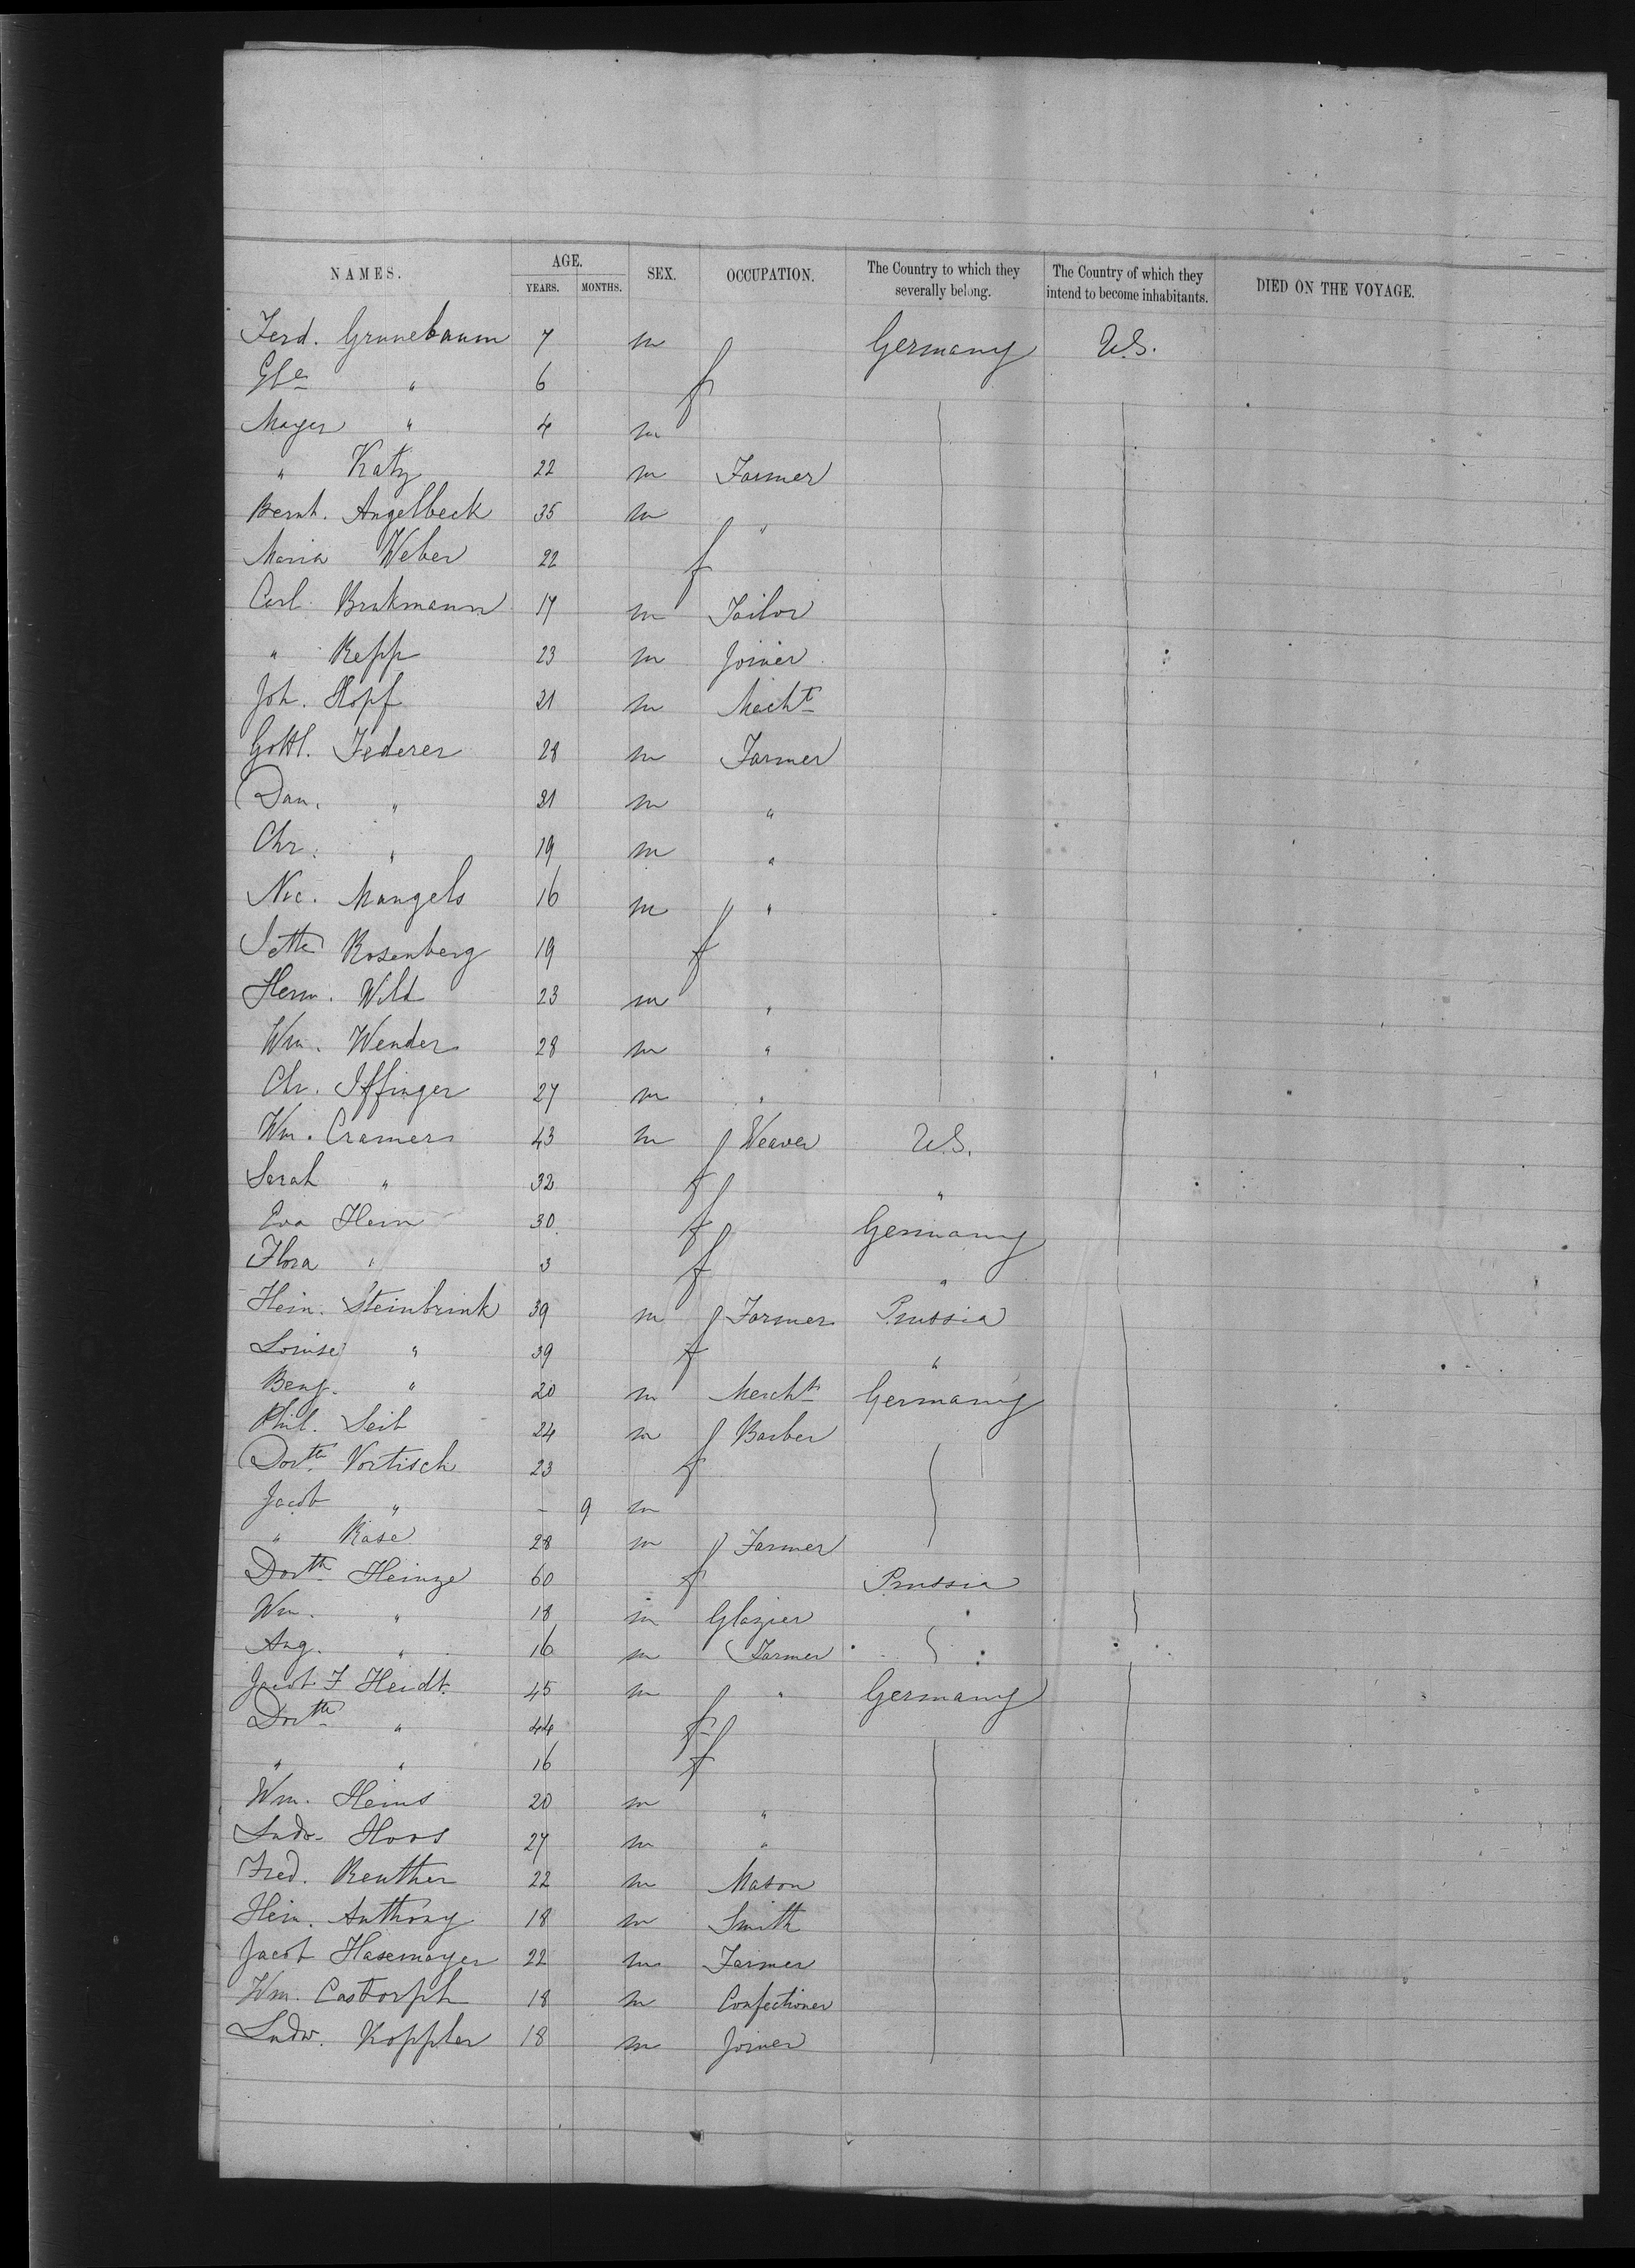 NAMES. AGE. SEX. OCCUPATION. The Country to which they severally belong. The Country of which they intend to become inhabitants. DIED ON THE VOYAGE.
YEARS. MONTHS.
Ferd. Grunebaum 7 m Germany U.S.
" 6 f
Mayer " 4 m
" Katz 22 m Farmer
Bernh. Angelbeck 35 m "
Maria Weber 22 f
Carl Brakmann 17 m Tailor
" Repp 23 m Joiner
Joh. Hopf 21 m Mecht
Gottl. Federer 28 m Farmer
Dan. " 21 m "
Chr. " 19 m "
Nic. Mangels 16 m "
Jette Rosenberg 19 f
Herm. Wild 23 m "
Wm. Wender 28 m "
Chr. Iffinger 27 m "
Wm. Cramer 43 m Weaver U.S.
Sarah " 32 f "
Eva Hern 30 f Germany
Flora " 3 f "
Hein. Steinbrink 39 m Farmer Prussia
Louise " 39 f "
Benj. " 20 m Mercht Germany
Phil. Seib 24 m Barber
Dorth Vortisch 23 f
Jacob " - 9 m
" Rase 28 m Farmer
Dorth Heinze 60 f Prussia
Wm. " 18 m Glazier
Aug. " 16 m Farmer
Jacob F Heidt 45 m " Germany
Dorth " 44 f
" " 16 f
Wm. Heins 20 m "
Ludw. Hoos 27 m "
Fred. Reuther 22 m Mason
Hein. Anthony 18 m Smith
Jacob Hasemayer 22 m Farmer
Wm. Castorph 18 m Confectioner
Ludw. Koppler 18 m Joiner